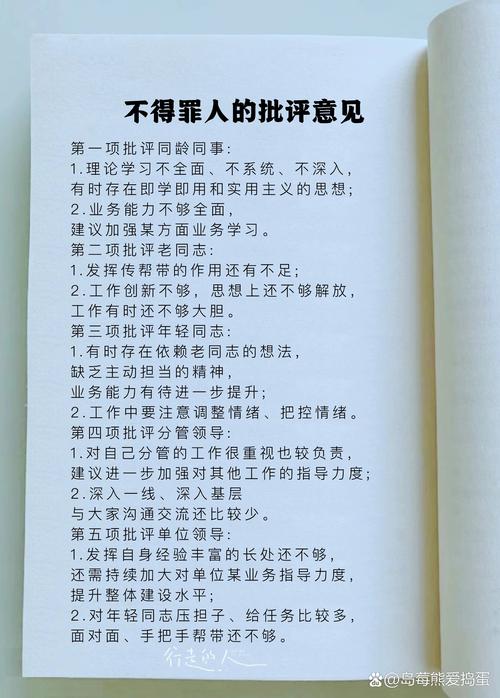 不得罪人的批评意见
第一项批评同龄同事:
1.理论学习不全面、不系统、不深入,
有时存在即学即用和实用主义的思想;
2.业务能力不够全面,
建议加强某方面业务学习。
第二项批评老同志:
1.发挥传帮带的作用还有不足;
2.工作创新不够，思想上还不够解放,
工作有时还不够大胆。
第三项批评年轻同志:
1.有时存在依赖老同志的想法,
缺乏主动担当的精神,
业务能力有待进一步提升;
2.工作中要注意调整情绪、把控情绪。
第四项批评分管领导:
1.对自己分管的工作很重视也较负责,
建议进一步加强对其他工作的指导力度;
2.深入一线、深入基层
与大家沟通交流还比较少。
第五项批评单位领导:
1.发挥自身经验丰富的长处还不够,
还需持续加大对单位某业务指导力度,
提升整体建设水平;
2.对年轻同志压担子、给任务比较多,
面对面、手把手帮带还不够。
行走的人
@岛莓熊爱捣蛋